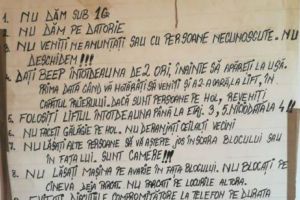 1. NU DĂM SUB 1G
2. NU DĂM PE DATORIE
3. NU VENIȚI NEANUNȚAȚI SAU CU PERSOANE NECUNOSCUTE. NU
DESCHIDEM!!!
4. DAȚI BEEP ÎNTOTDEAUNA DE 2 ORI, ÎNAINTE SĂ APĂREȚI LA UȘĂ.
PRIMA DATĂ CÂND VĂ HOTĂRÂȚI SĂ VENIȚI ȘI A 2-A OARĂ LA LIFT, ÎN
CAPĂTUL PALIERULUI. DACĂ SUNT PERSOANE PE HOL, REVENIȚI
5. FOLOSIȚI LIFTUL ÎNTOTDEAUNA PÂNĂ LA ETAJ. 3, 5, NICIODATĂ 4!!
6. NU FACEȚI GĂLĂGIE PE HOL. NU DERANJAȚI CEILALȚI VECINI
7. NU LĂSAȚI ALTE PERSOANE SĂ VĂ AȘTEPTE JOS ÎN SCARA BLOCULUI SAU
ÎN FAȚA LUI. SUNT CAMERE!!!
8. NU LĂSAȚI MAȘINA PE AVARIE ÎN FAȚA BLOCULUI. NU BLOCAȚI PE
CINEVA DEJA PARCAT NU PARCAȚI PE LOCURILE ALTORA.
EVITAȚI DISCUȚIILE COMPROMIȚĂTOARE LA TELEFON PE DURATA